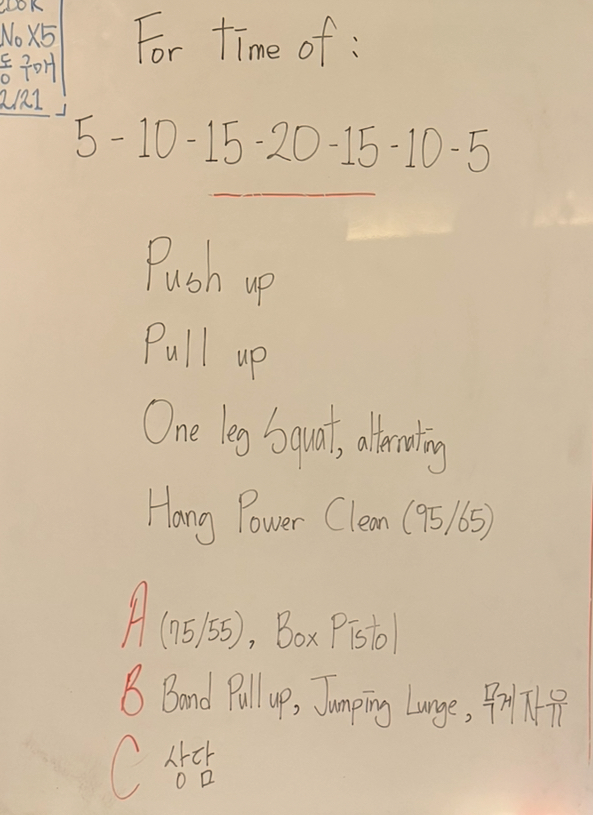 No X5
동 구매
2/21
For time of :
5 - 10 - 15 - 20 - 15 - 10 - 5
Push up
Pull up
One leg Squat, alternating
Hang Power Clean (95/65)
A (75/55), Box Pistol
B Band Pull up, Jumping Lunge, 무게 자유
C 상담